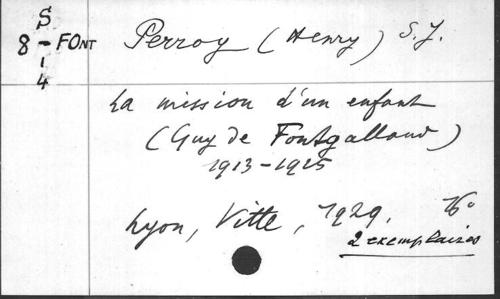 S
8 - FONT
-
4
Perroy (Henry) S.J.
La mission d'un enfant
(Guy de Fontgalland)
1913-1925
Lyon, Vitte, 1929, 16°
2 exemplaires